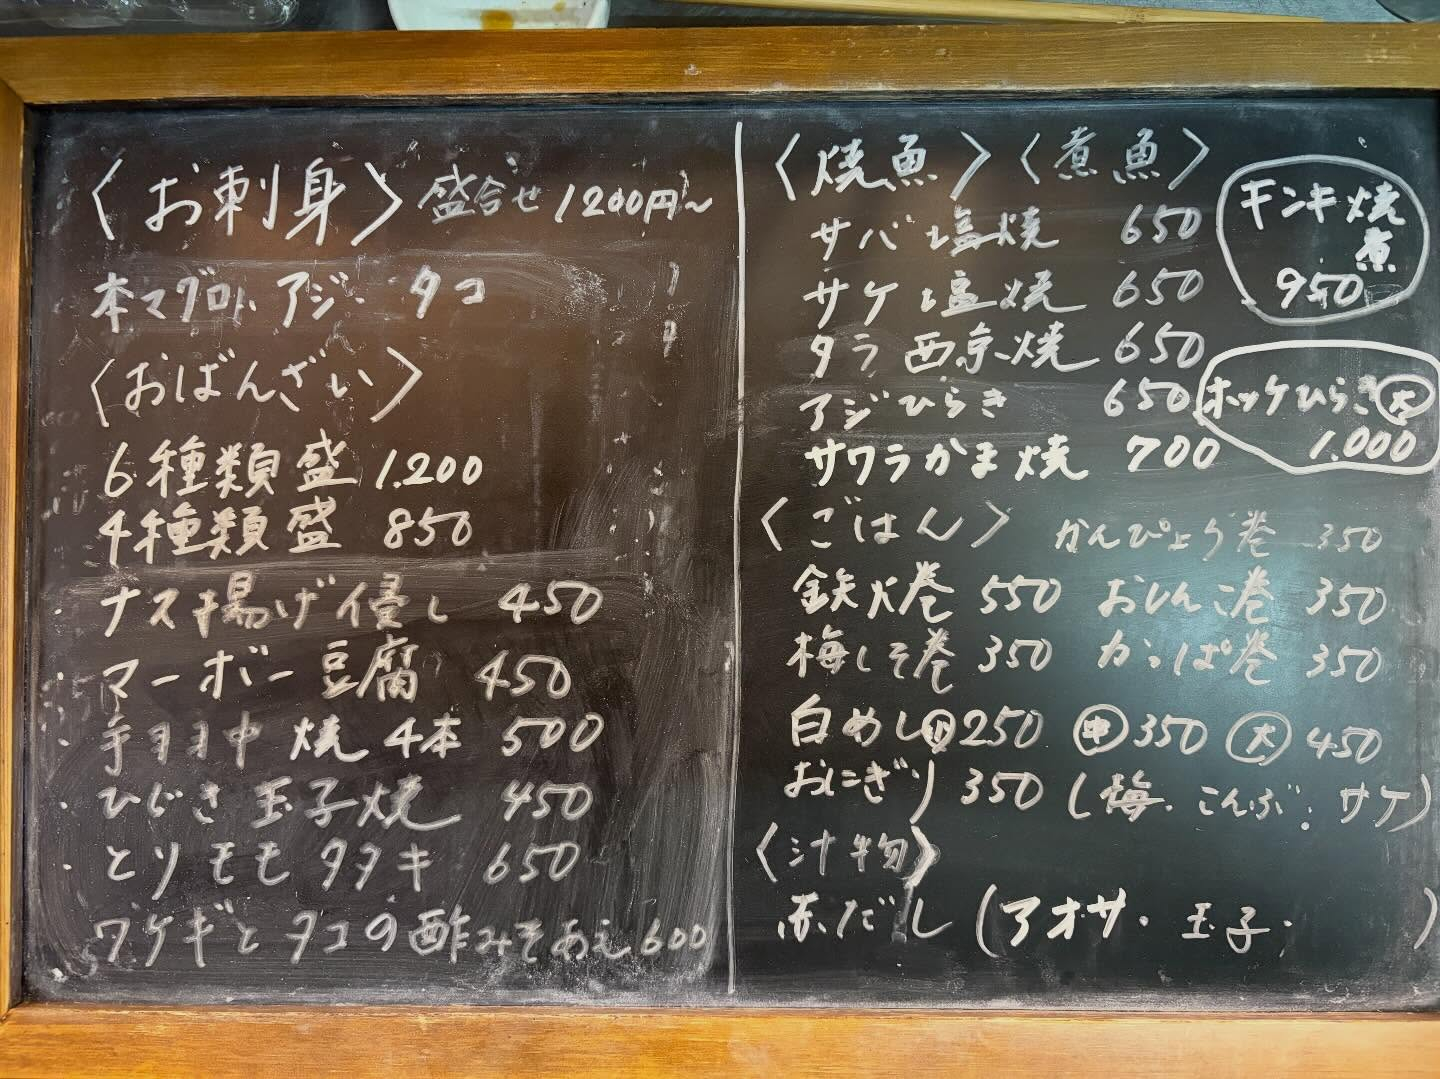 〈お刺身〉盛合せ 1200円〜
本マグロ、アジ、タコ
〈おばんざい〉
6種類盛 1.200
4種類盛 850
・ナス揚げ侵し 450
・マーボー豆腐 450
・手ヨヨ中 焼 4本 500
・ひじき玉子焼 450
・とりモモタタキ 650
・ワケギとタコの酢みそあえ 600
〈焼魚〉〈煮魚〉
サバ塩焼 650
サケ塩焼 650
タラ西京焼 650
アジひらき 650
サワラかま焼 700
キンキ焼
煮
950
ホッケひらき 大
1.000
〈ごはん〉 かんぴょう巻 350
鉄火巻 550 おしんこ巻 350
梅しそ巻 350 かっぱ巻 350
白めし 小 250 中 350 大 450
おにぎり 350 (梅・こんぶ・サケ)
〈汁物〉
赤だし (アオサ・玉子・ )